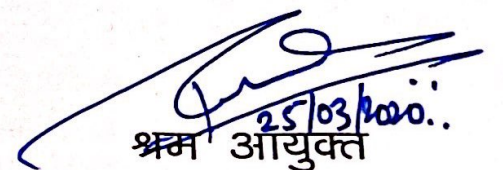 25/03/2020
श्रम आयुक्त